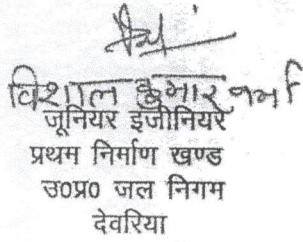 विशाल कुमार वर्मा
जूनियर इंजीनियर
प्रथम निर्माण खण्ड
उ०प्र० जल निगम
देवरिया